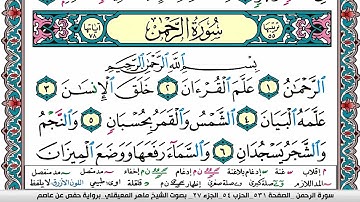 ترتيبها ٥٥ سُورَةُ الرَّحْمَٰن آياتها ٧٨
بِسْمِ اللَّهِ الرَّحْمَٰنِ الرَّحِيمِ
الرَّحْمَٰنُ ١ عَلَّمَ الْقُرْءَانَ ٢ خَلَقَ الْإِنسَٰنَ ٣
عَلَّمَهُ الْبَيَانَ ٤ الشَّمْسُ وَالْقَمَرُ بِحُسْبَانٍ ٥ وَالنَّجْمُ
وَالشَّجَرُ يَسْجُدَانِ ٦ وَالسَّمَاءَ رَفَعَهَا وَوَضَعَ الْمِيزَانَ
سورة الرحمن الصفحة ٥٣١ الحزب ٥٤ الجزء ٢٧ بصوت الشيخ ماهر المعيقلي برواية حفص عن عاصم